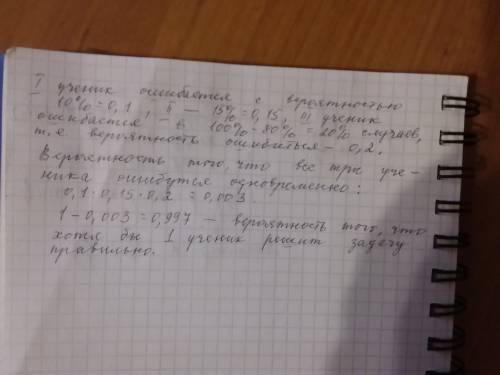 I ученик ошибается с вероятностью
10% = 0,1, II — 15% = 0,15, III ученик
ошибается в 100% - 80% = 20% случаев,
т.е вероятность ошибиться - 0,2.
Вероятность того, что все три уче-
ника ошибутся одновременно:
0,1 · 0,15 · 0,2 = 0,003
1 - 0,003 = 0,997 — вероятность того, что
хотя бы 1 ученик решит задачу
правильно.